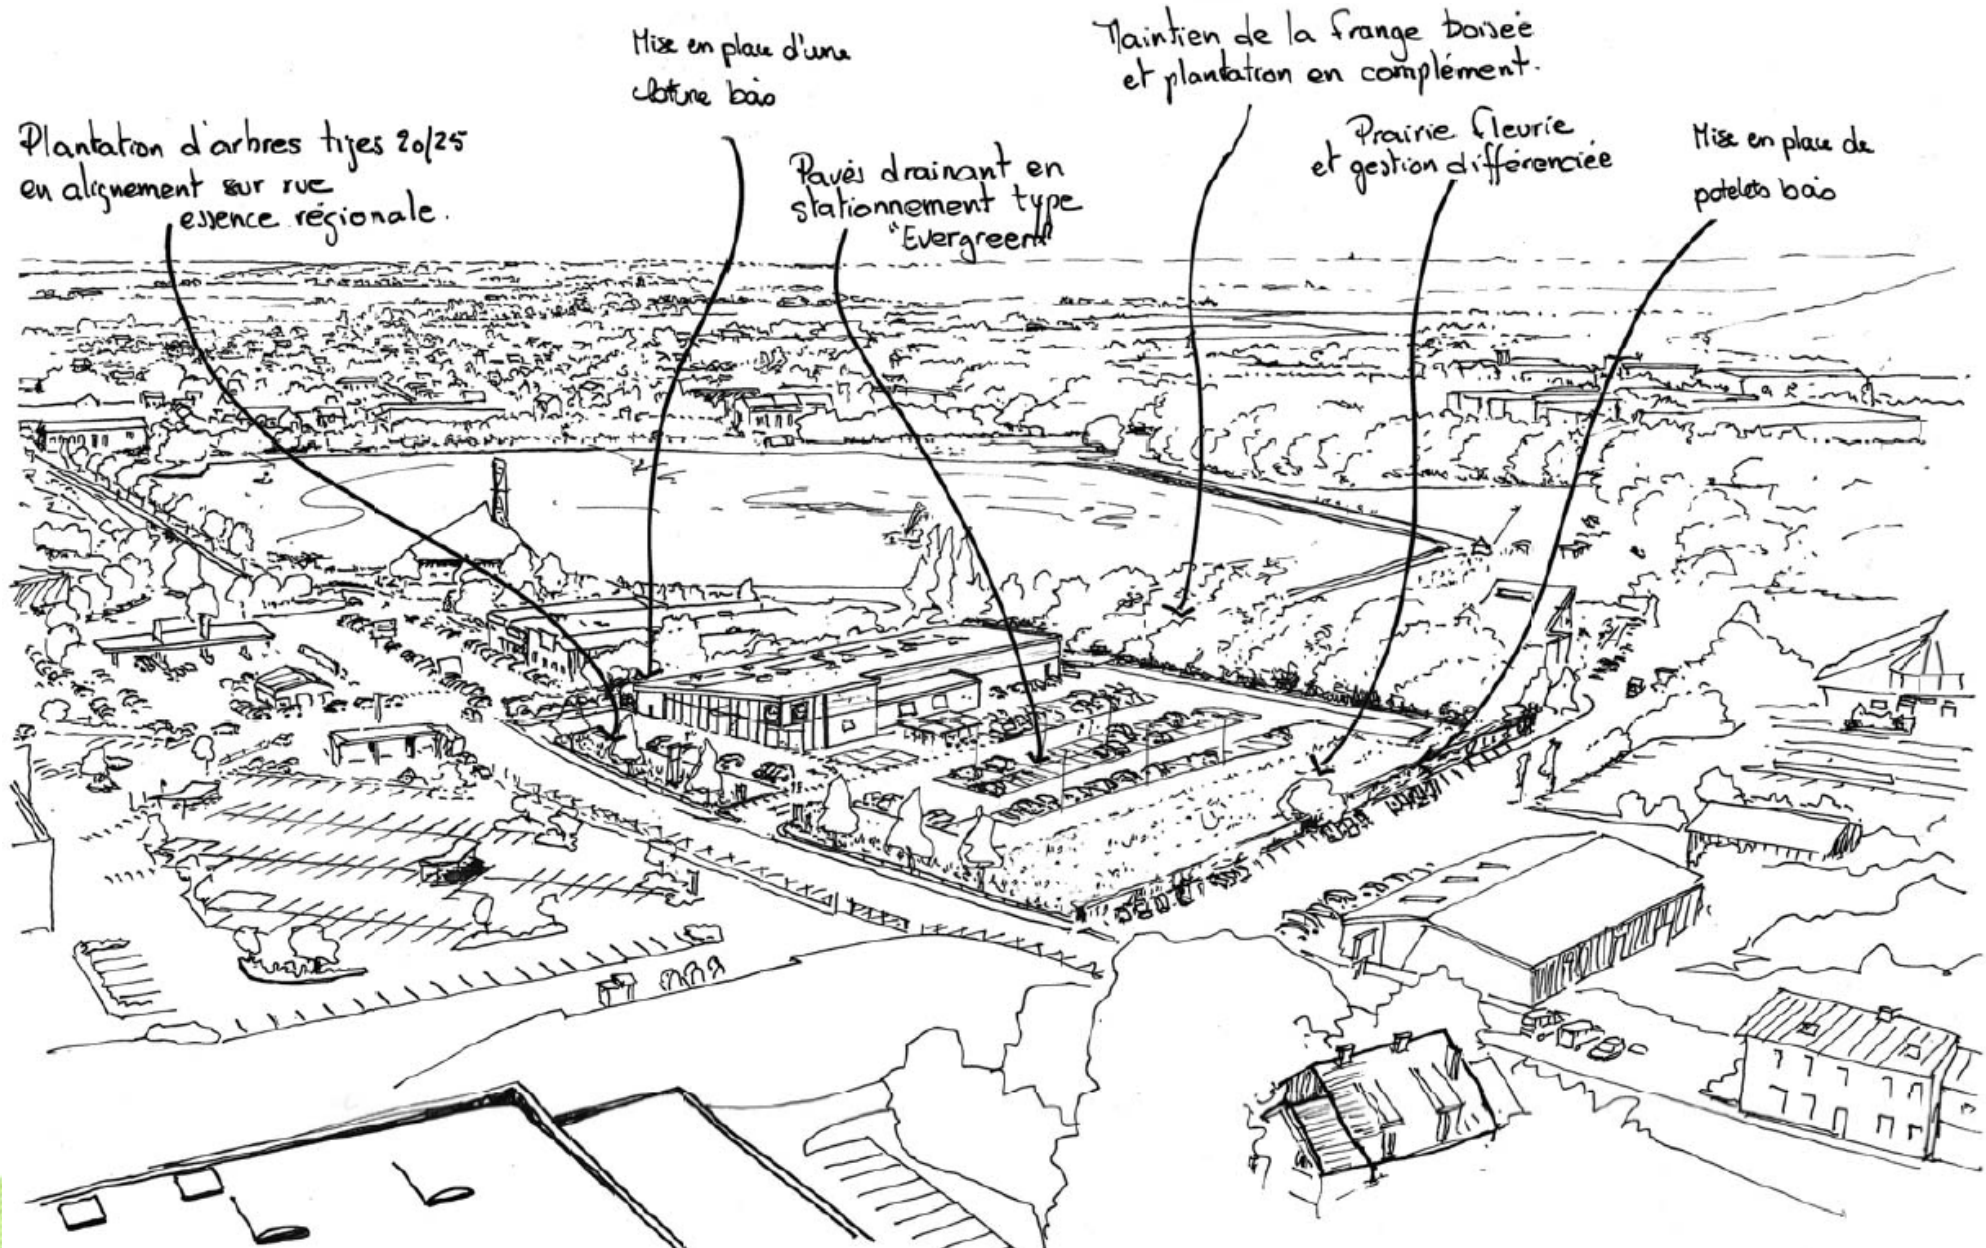 Plantation d'arbres tiges 20/25
en alignement sur rue
essence régionale.
Mise en place d'une
cloture bois
Pavés drainant en
stationnement type
"Evergreen"
Maintien de la frange boisée
et plantation en complément.
Prairie fleurie
et gestion différenciée
Mise en place de
potelets bois